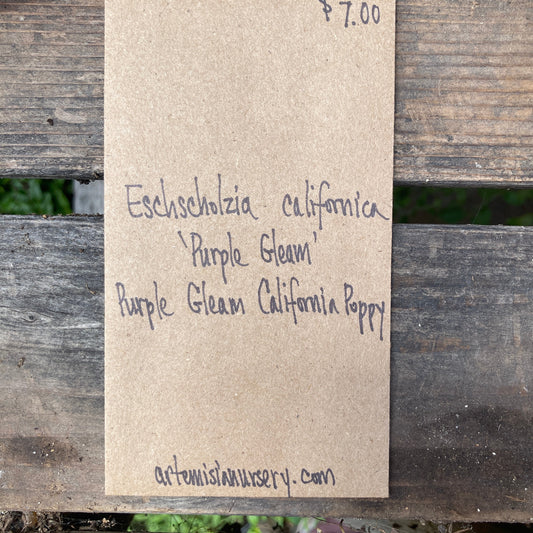 $7.00
Eschscholzia californica
'Purple Gleam'
Purple Gleam California Poppy
artemisianursery.com